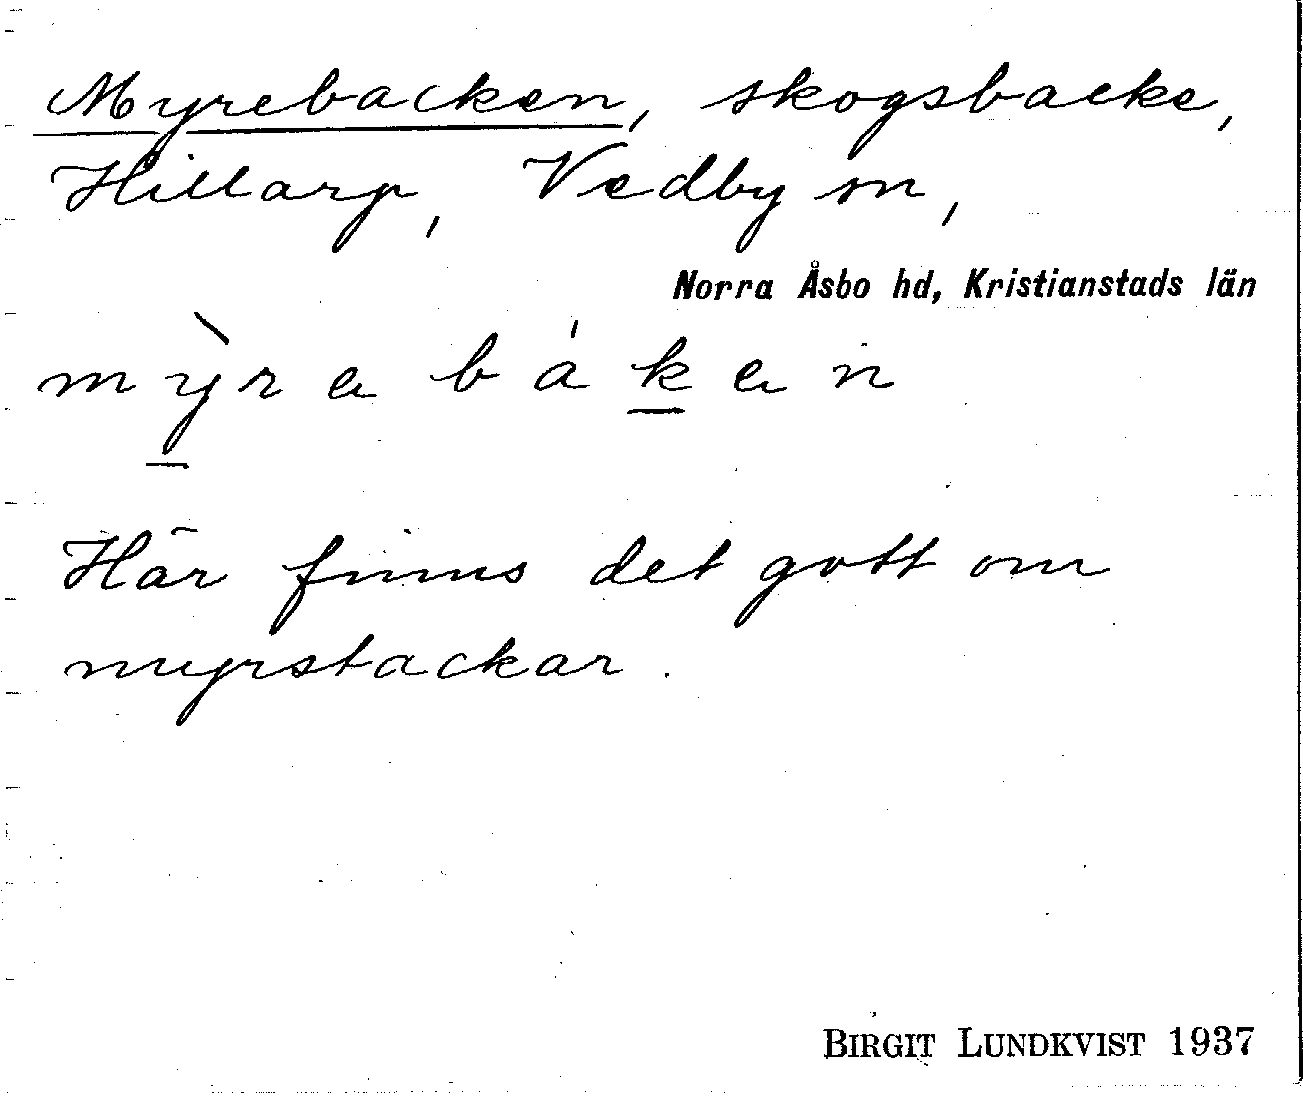 Myrebacken, skogsbacke,
Hillarp, Vedby sn,
Norra Åsbo hd, Kristianstads län
mỳrabákan
Här finns det gott om
myrstackar.
BIRGIT LUNDKVIST 1937